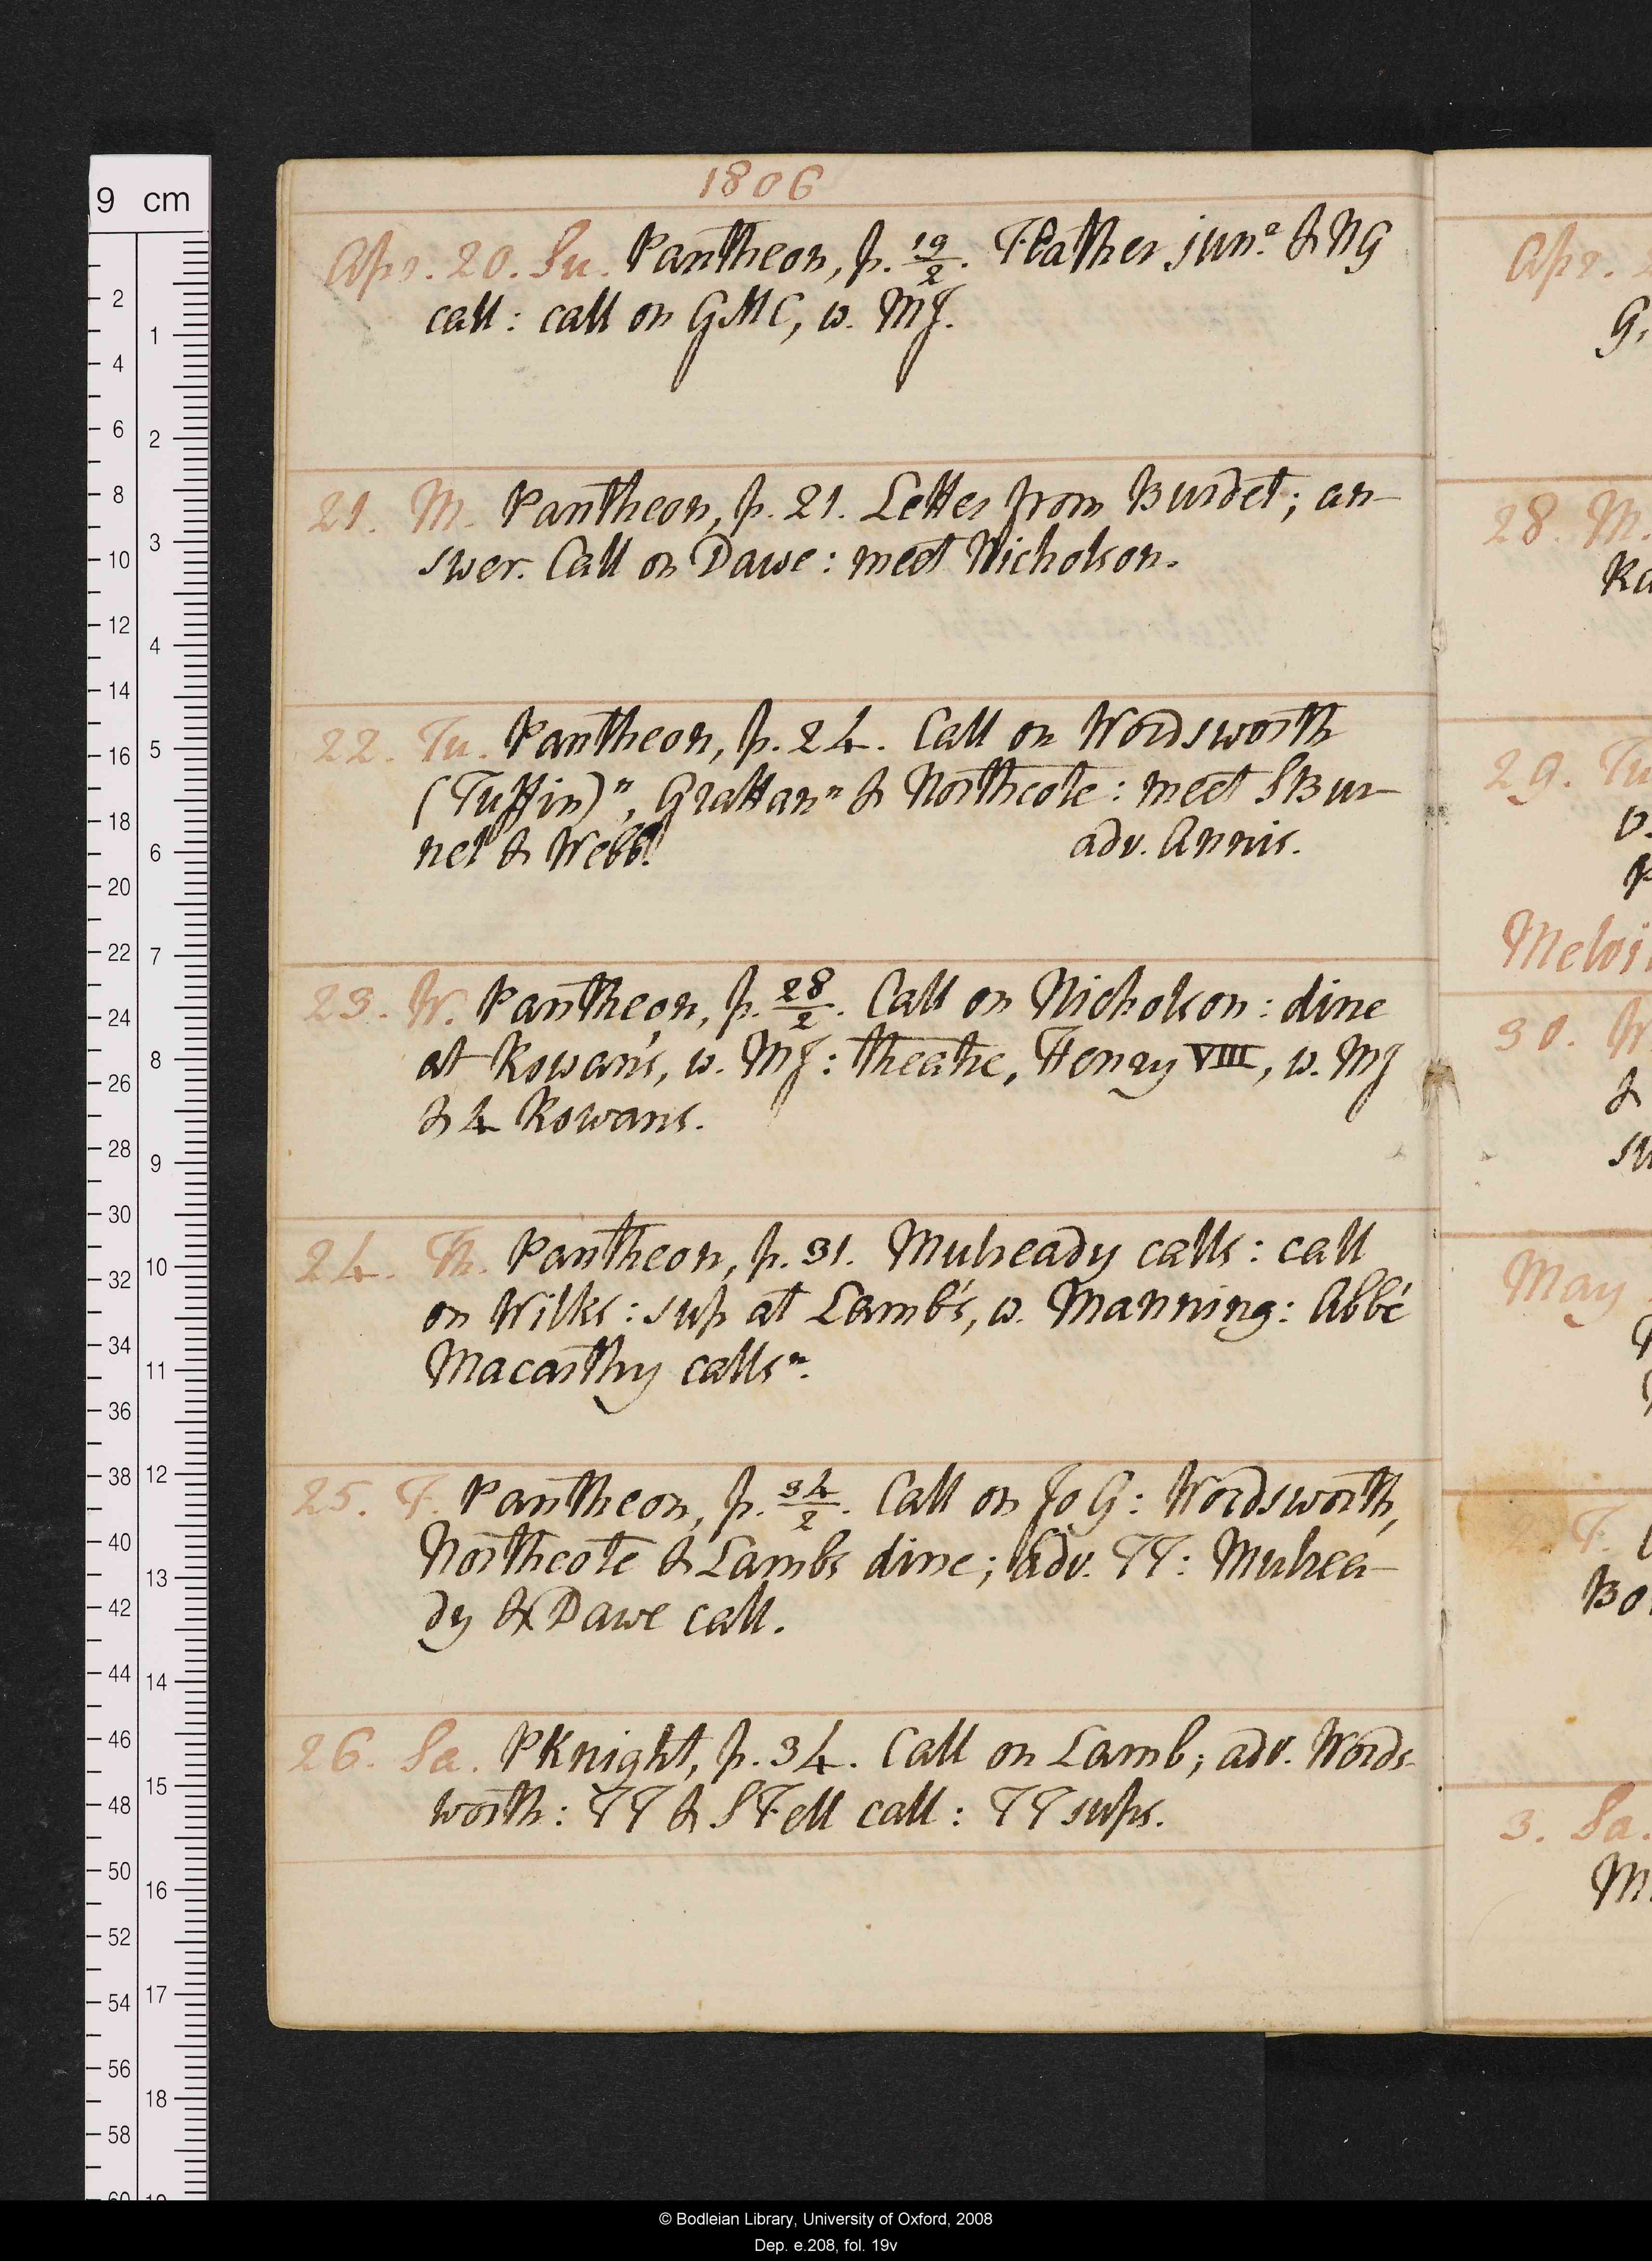 1806
Apr. 20. Su. Pantheon, p. 19/2. Flather junr & NG
call: call on GMC, w. MJ.
21. M. Pantheon, p. 21. Letter from Burdet; an-
swer. Call on Dawe: meet Nicholson.
22. Tu. Pantheon, p. 24. Call on Wordsworth
(Tuffin)n, Grattann & Northcote: meet SBur-
nel & Webb.
adv. Annis.
23. W. Pantheon, p. 28/2. Call on Nicholson: dine
at Rowan's, w. MJ: theatre, Henry VIII, w. MJ
& 4 Rowans.
24. Th. Pantheon, p. 31. Mulready calls: call
on Wilks: sup at Lamb's, w. Manning: Abbé
Macarthy callsn.
25. F. Pantheon, p. 34/2. Call on JoG: Wordsworth,
Northcote & Lambs dine; adv. TT: Mulrea-
dy & Dawe call.
26. Sa. PKnight, p. 34. Call on Lamb; adv. Words-
worth: TT & SFell call: TT sups.
Apr.
G,
28. M.
Ka
29. Tu
p
Melvi
30. W
&
sw
May
F.
Bo
3. Sa.
M
9 cm
2
4
6
8
10
12
14
16
18
20
22
24
26
28
30
32
34
36
38
40
42
44
46
48
50
52
54
56
58
60
1
2
3
4
5
6
7
8
9
10
11
12
13
14
15
16
17
18
19
© Bodleian Library, University of Oxford, 2008
Dep. e.208, fol. 19v